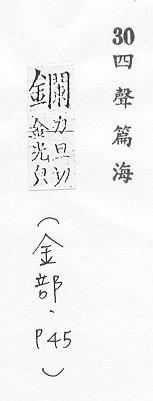 30四聲篇海
鑭力旦切
金光皃
(金部、P45)